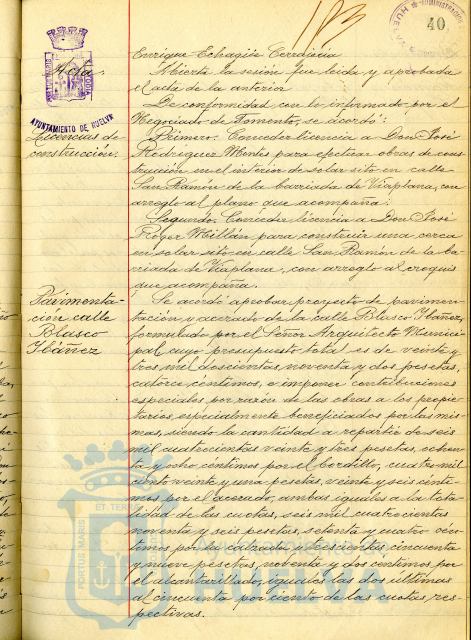 40
Enrique Echagüe Cerrajería
Acta.
Abierta la sesión fue leida y aprobada
el acta de la anterior
AYUNTAMIENTO DE HUELVA
De conformidad con lo informado por el
Negociado de Fomento, se acordó:
Licencias de
construcción.
Primero. Conceder licencia a Don José
Rodríguez Montes para efectuar obras de cons-
trucción en el interior de solar sito en calle
San Ramón de la barriada de Viaplana, con
arreglo al plano que acompaña.
Segundo. Conceder licencia a Don José
Roger Millán para construir una cerca
en solar sito en calle San Ramón de la ba-
rriada de Viaplana, con arreglo al croquis
que acompaña.
Pavimenta-
ción calle
Blasco
Ibáñez
Se acordó aprobar proyecto de pavimen-
tación y acerado de la calle Blasco Ibáñez,
formulado por el Señor Arquitecto Munici-
pal cuyo presupuesto total es de veinte y
tres mil doscientas noventa y dos pesetas,
catorce céntimos, e imponer contribuciones
especiales por razón de las obras a los propie-
tarios especialmente beneficiados por las mis-
mas, siendo la cantidad a repartir de seis
mil cuatrocientas veinte y tres pesetas, ochen-
ta y ocho céntimos por el bordillo, cuatro mil
ciento veinte y una pesetas, veinte y seis cénti-
mos por el acerado, ambas iguales a la tota-
lidad de las cuotas, seis mil cuatrocientas
noventa y seis pesetas, setenta y cuatro cén-
timos por la calzada y trescientas cincuenta
y nueve pesetas, noventa y dos céntimos por
el alcantarillado, iguales las dos últimas
al cincuenta por ciento de las cuotas res-
pectivas.
PORTUS MARIS ET TERRAE
Ayuntamiento de
HUELVA